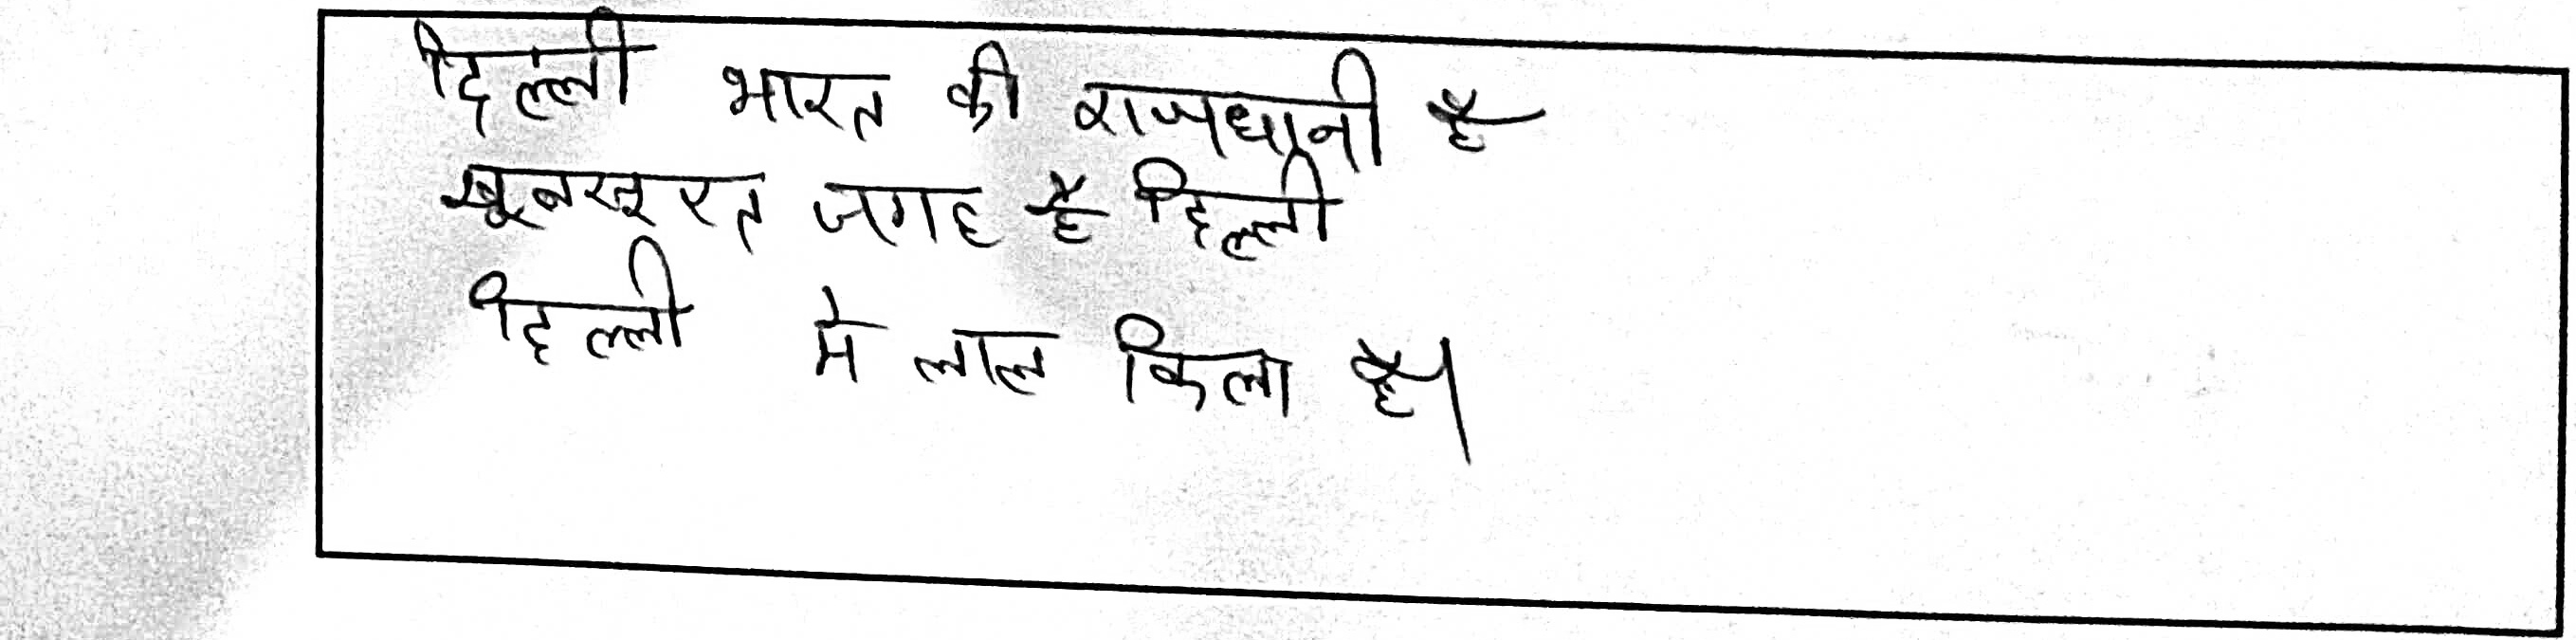 दिल्ली भारत की राजधानी है
खूबसूरत जगह है दिल्ली
दिल्ली मे लाल किला है।